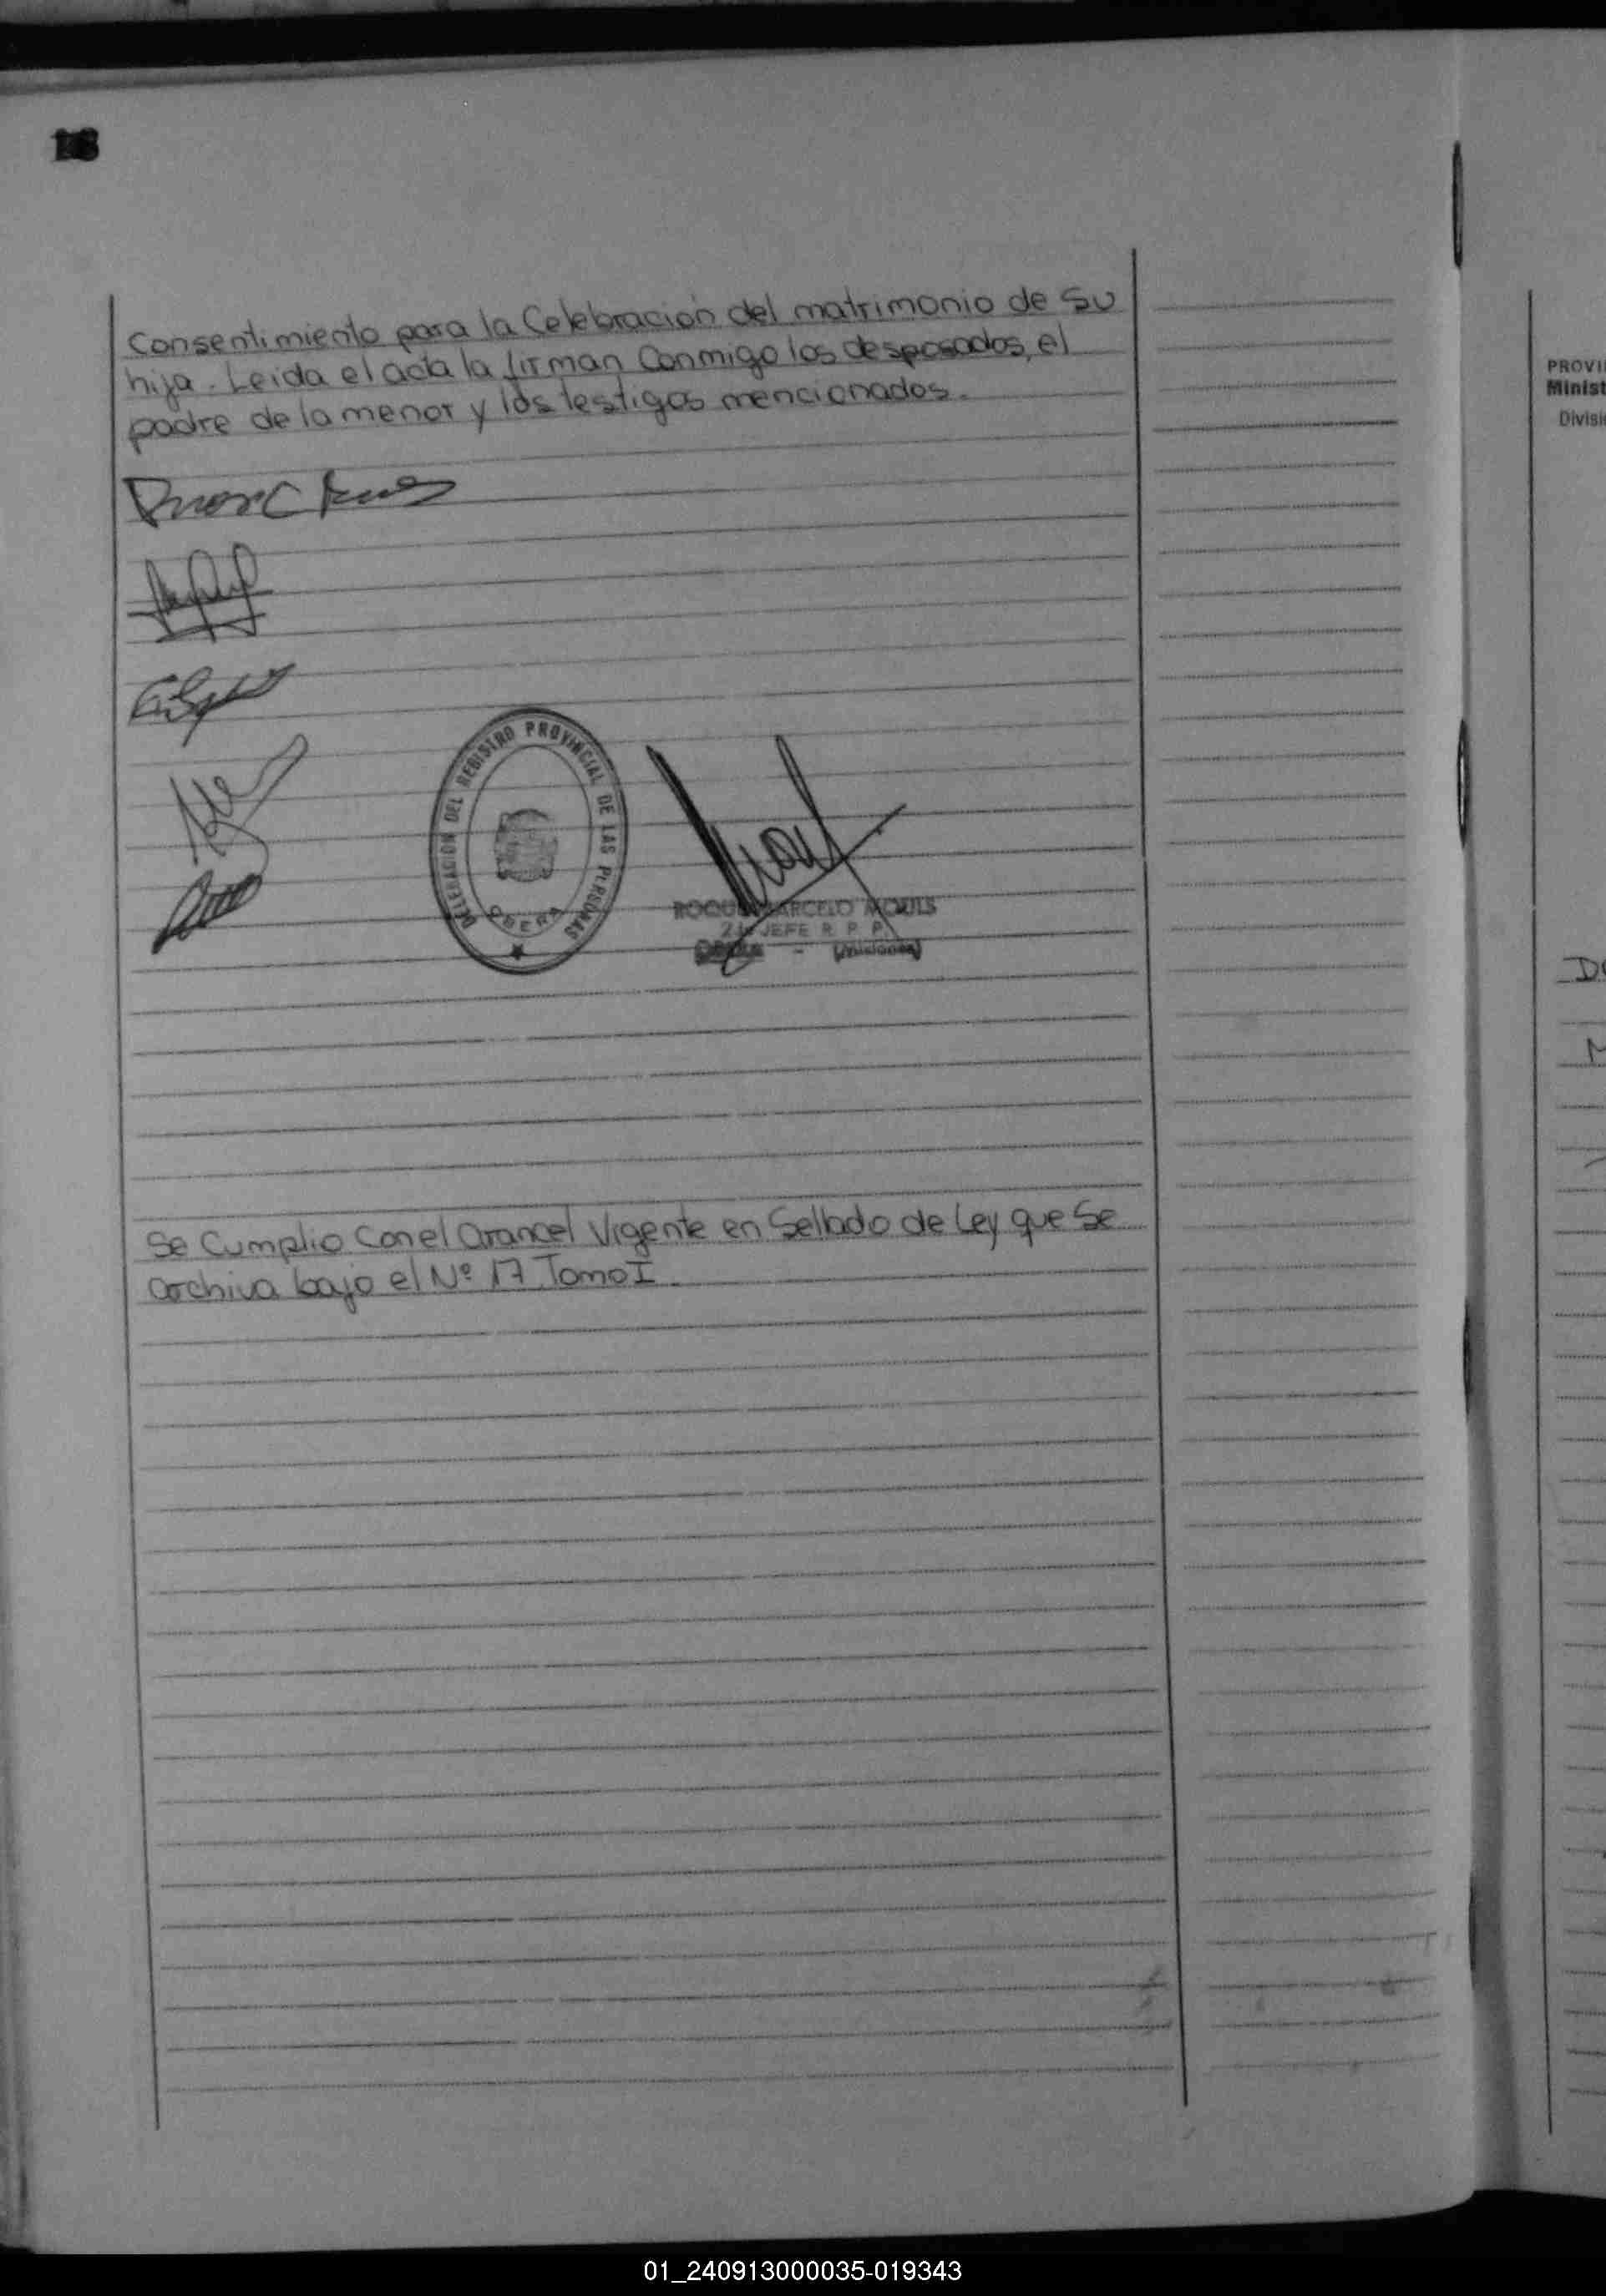 Consentimiento para la Celebración del matrimonio de su
hija. Leida el acta la firman Conmigo los desposados, el
padre de la menor y los testigos mencionados.
DELEGACION DEL REGISTRO PROVINCIAL DE LAS PERSONAS
OBERA
ROQUE MARCELO
JEFE R. P. P.
- (Misiones)
Se Cumplio Con el Arancel Vigente en Sellado de Ley que Se
archiva bajo el Nº 17 Tomo I.
PROVI
Minist
Divisi
01_240913000035-019343